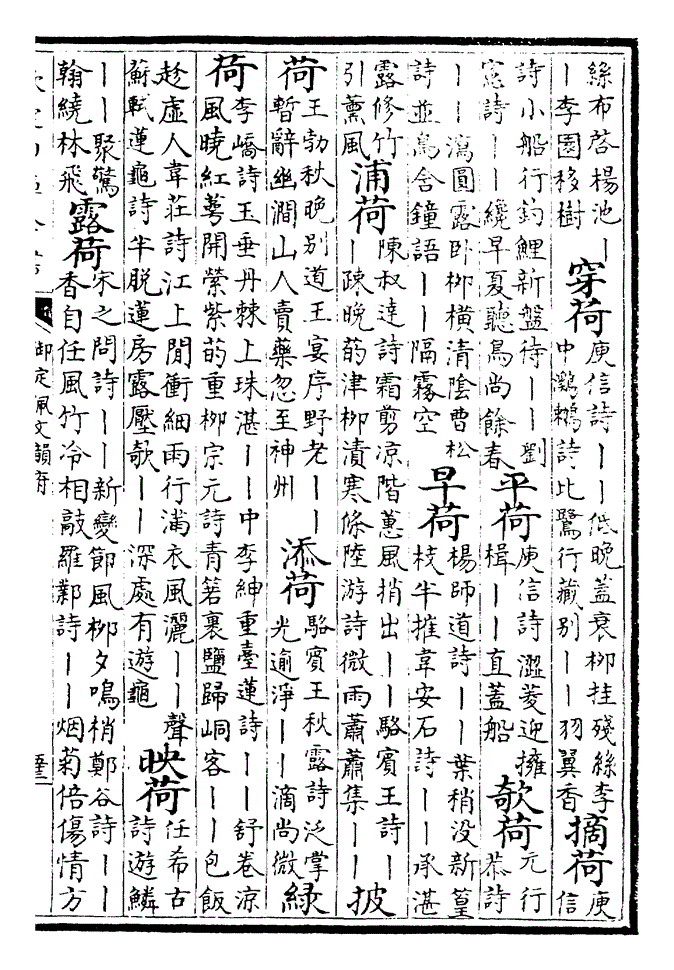 絲布啓楊池｜
｜李園移樹
穿荷
庾信詩｜｜低晚蓋衰柳挂殘絲李
中鸂鶒詩比鷺行藏別｜｜羽翼香
摘荷
庾
信
詩小船行釣鯉新盤待｜｜劉
憲詩｜｜纔早夏聽鳥尚餘春
平荷
庾信詩澀菱迎擁
楫｜｜直蓋船
欹荷
元行
恭詩
｜｜瀉圓露卧柳橫清陰曹松
詩並鳥含鐘語｜｜隔霧空
早荷
楊師道詩｜｜葉稍没新篁
枝半摧韋安石詩｜｜承湛
露修竹
引薰風
浦荷
陳叔達詩霜剪凉階蕙風捎出｜｜駱賓王詩｜
｜踈晚菂津柳漬寒條陸游詩微雨蕭蕭集｜｜
披
荷
王勃秋晚别道王宴序野老｜｜
暫辭幽澗山人賣藥忽至神州
添荷
駱賓王秋露詩泛掌
光逾淨｜｜滴尚微
緑
荷
李嶠詩玉垂丹棘上珠湛｜｜中李紳重臺蓮詩｜｜舒卷凉
風曉紅萼開縈紫菂重柳宗元詩青箬裹鹽歸峒客｜｜包飯
趁虛人韋莊詩江上閒衝細雨行滿衣風灑｜｜聲
蘇軾蓮龜詩半脱蓮房露壓欹｜｜深處有遊龜
映荷
任希古
詩遊鱗
｜｜聚驚
翰繞林飛
露荷
宋之問詩｜｜新變節風柳夕鳴梢鄭谷詩｜｜
香自任風竹冷相敲羅鄴詩｜｜烟菊倍傷情方
御定佩文韻府